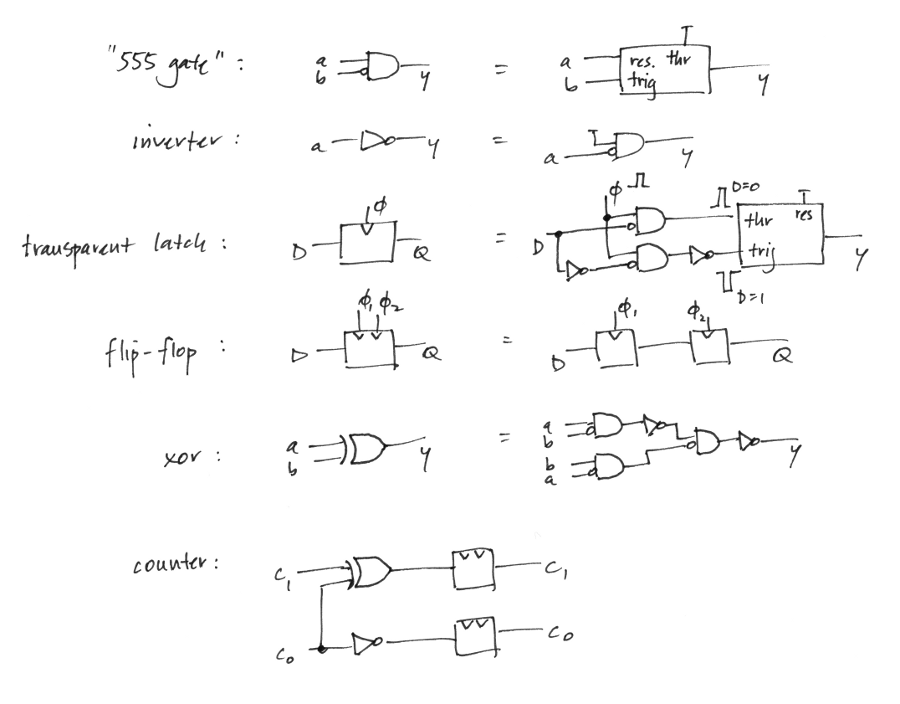 "555 gate" : a b y = a b res. thr trig y
inverter : a y = a y
transparent latch : D φ Q = D φ D=0 thr res trig D=1 y
flip-flop : D φ₁ φ₂ Q = D φ₁ φ₂ Q
xor : a b y = a b b a y
counter : C₁ C₁
C₀ C₀